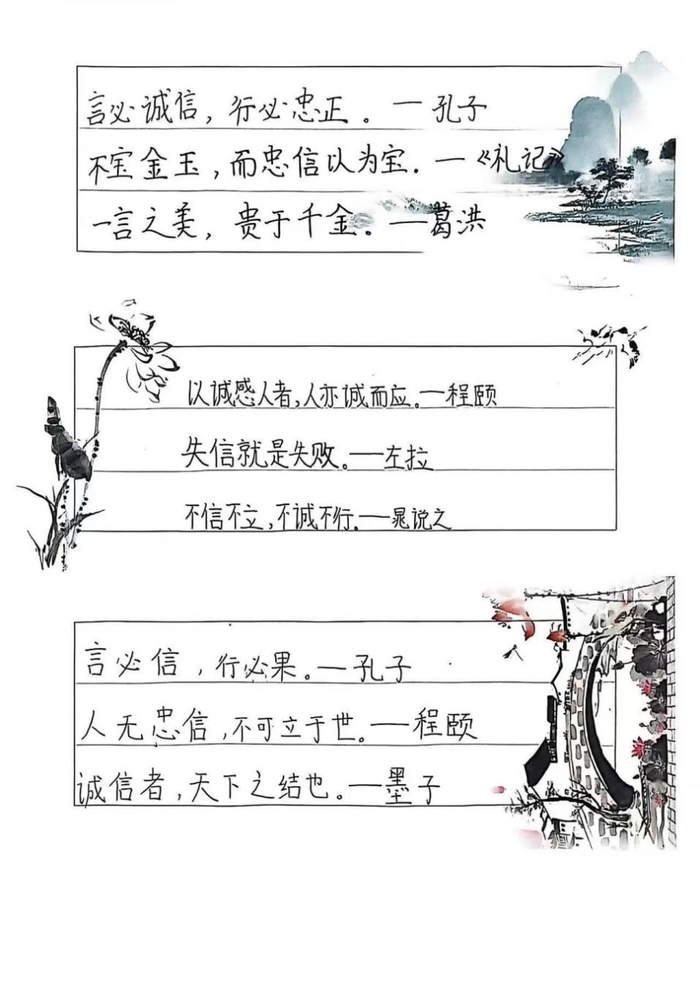 言必诚信，行必忠正。—孔子
不宝金玉，而忠信以为宝.—《礼记》
一言之美，贵于千金.—葛洪
以诚感人者,人亦诚而应.—程颐
失信就是失败。—左拉
不信不立,不诚不行.—晁说之
言必信，行必果。—孔子
人无忠信,不可立于世.—程颐
诚信者,天下之结也。—墨子